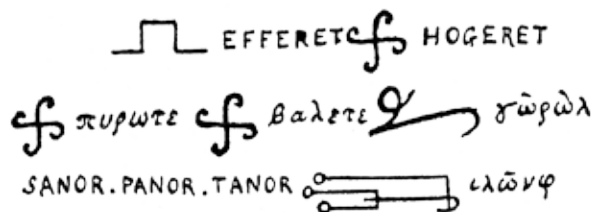 EFFERET HOGERET
πυρωτε βαλετε γῶρῶλ
SANOR. PANOR. TANOR ιλῶνφ